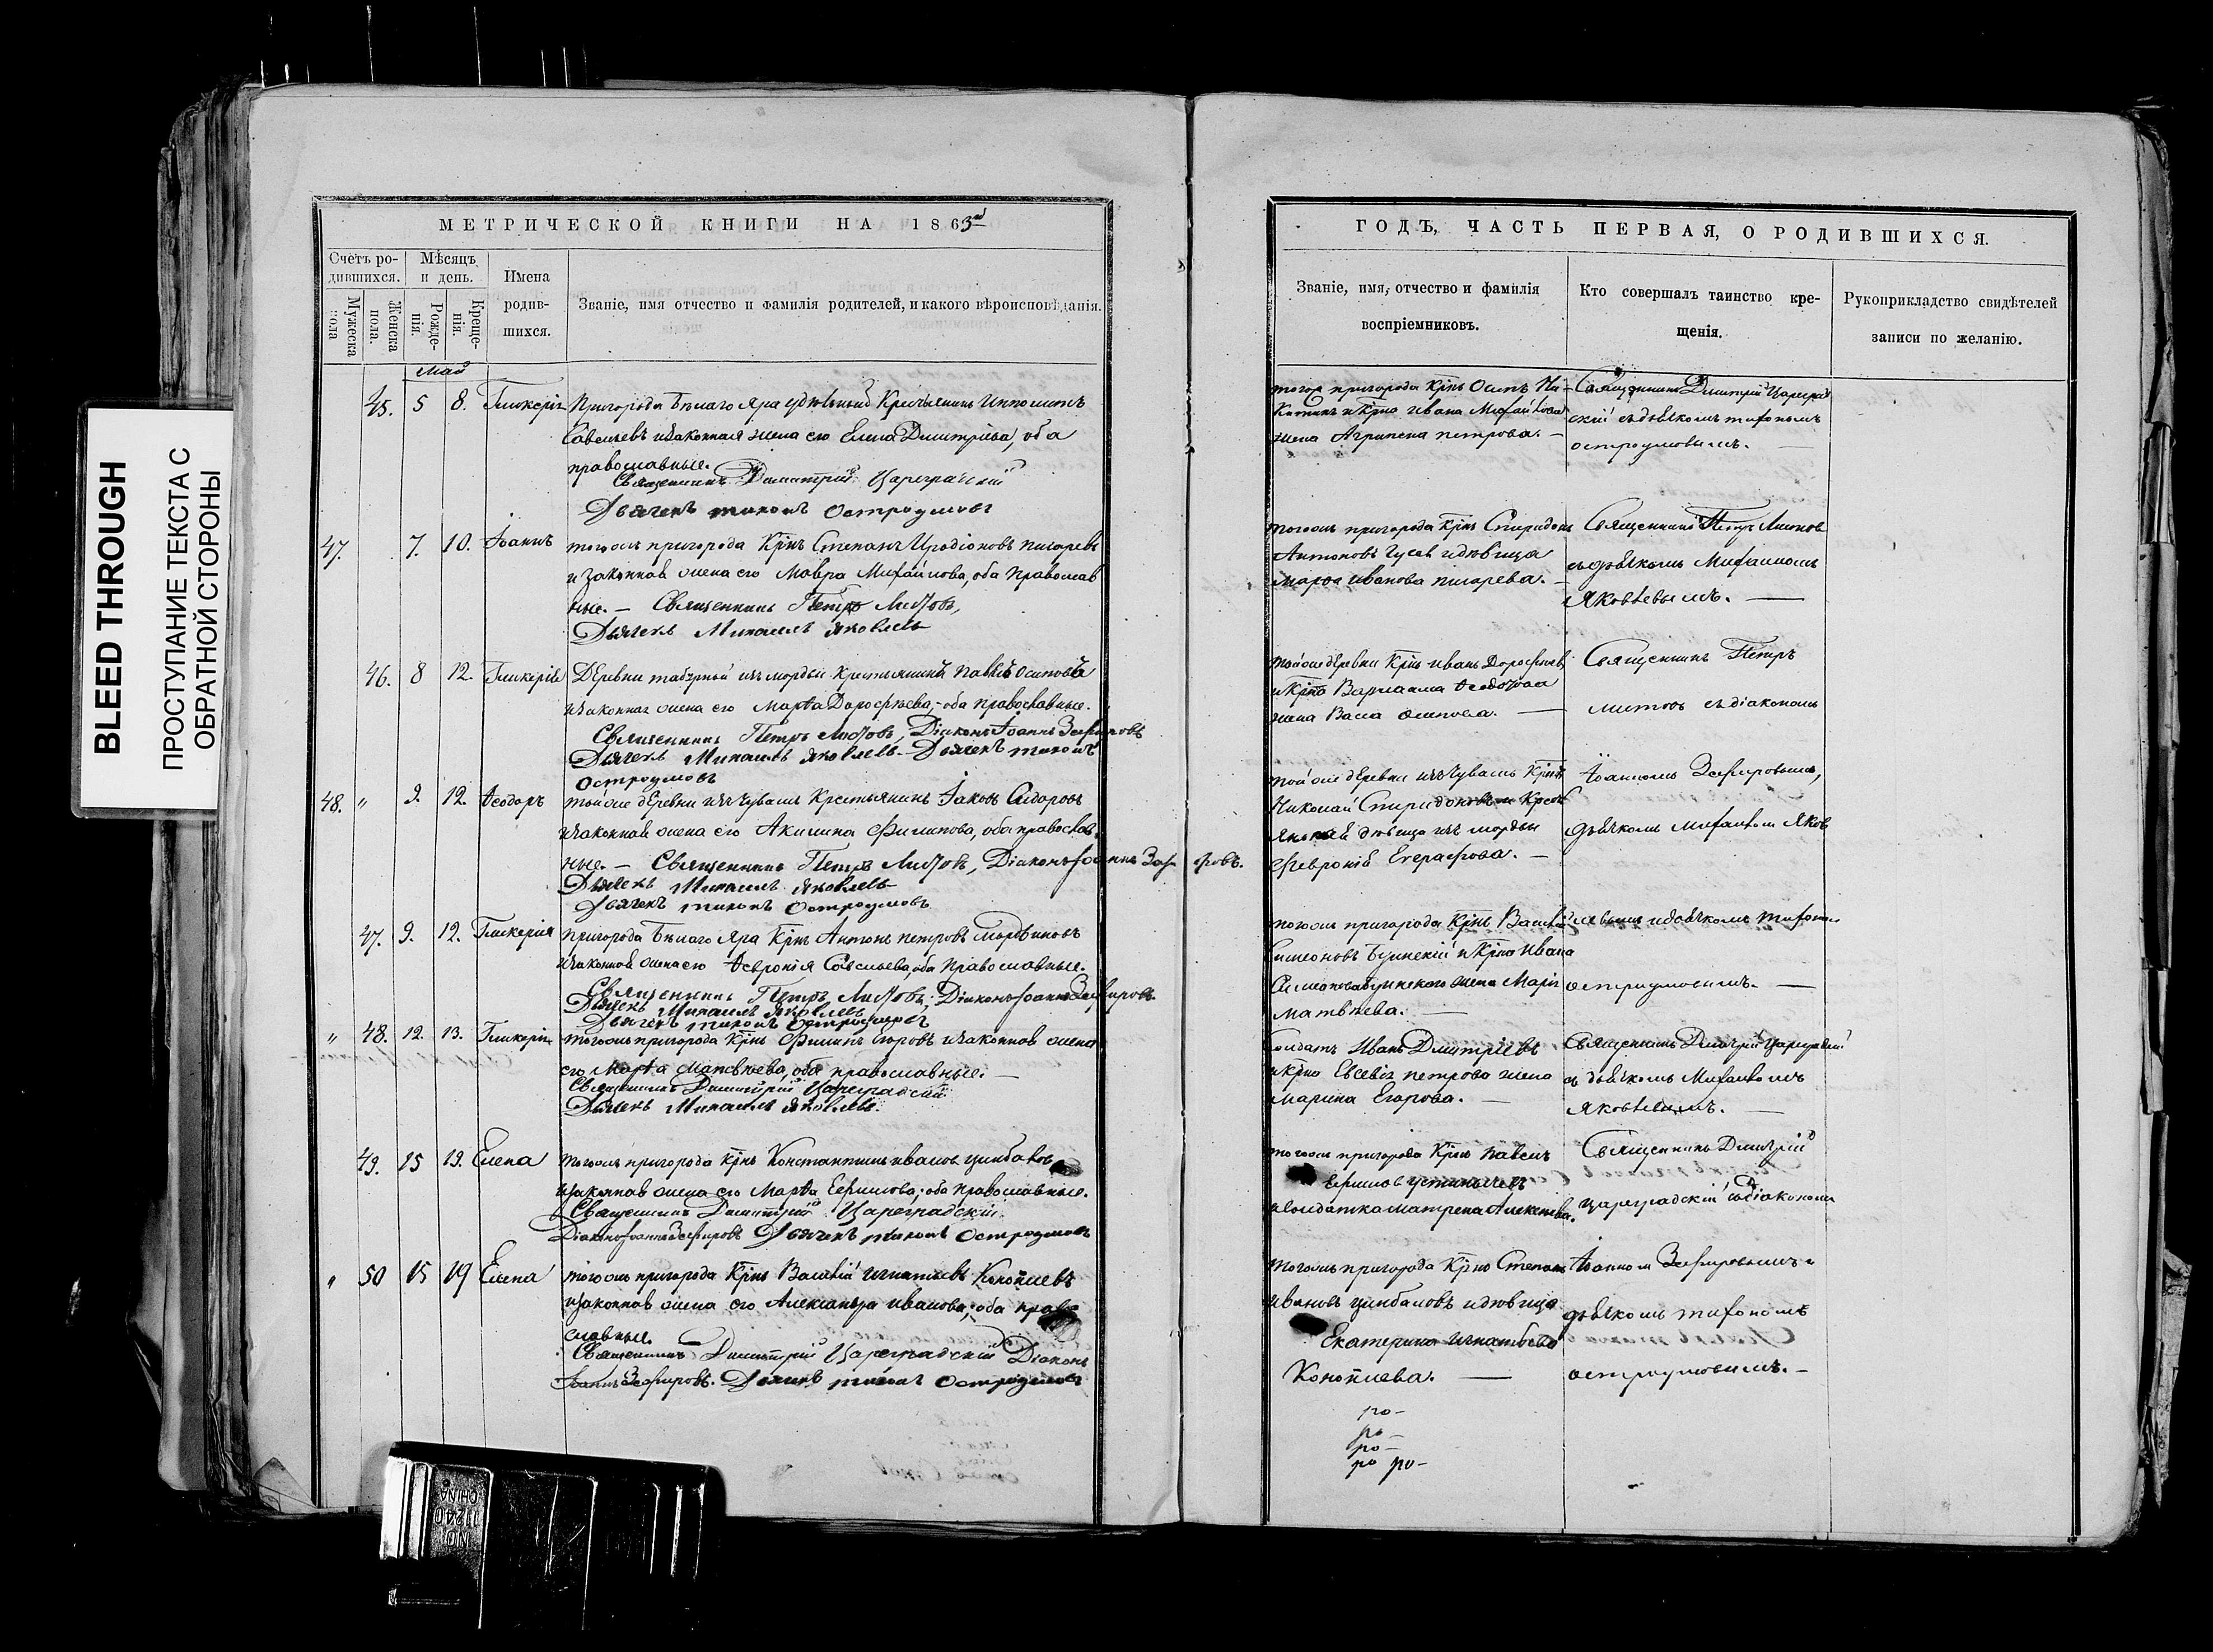 BLEED THROUGH
ПРОСТУПАНИЕ ТЕКСТА С
ОБРАТНОЙ СТОРОНЫ
МЕТРИЧЕСКОЙ КНИГИ НА 1863й
Счетъ ро-
дившихся.
Мужеска
пола
Женска
пола.
Мѣсяцъ
и день.
Рожде-
нія.
Креще-
нія.
Имена
родив-
шихся.
Званіе, имя отчество и фамилія родителей, и какого вѣроисповѣданія.
Май
45. 5 8. Гликерія Пригорода Бѣлаго Яра удѣльный Крестьянинъ Ипполитъ
Савельевъ и законная жена его Елена Дмитріева, оба
православные.
Священникъ Димитрій Цареградскій
Дьячекъ Тихонъ Остроумовъ
47. 7. 10. Іоаннъ тогожъ пригорода Крнъ Степанъ Иродіоновъ Пигаревъ
и законная жена его Мавра Михайлова, оба Православ
ные. — Священникъ Петръ Листовъ,
Дьячекъ Михаилъ Яковлевъ
46. 8 12. Гликерія Деревни табурной изъ мордвы Крестьянинъ Павелъ Осиповъ
и законная жена его Марѳа Дороѳѣева, оба Православные.
Священникъ Петръ Листовъ, Діаконъ Іоаннъ Зефировъ
Дьячекъ Михаилъ Яковлевъ. Дьячекъ Тихонъ
Остроумовъ
48. " 9. 12. Ѳеодоръ тойже деревни изъ Чувашъ Крестьянинъ Іаковъ Сидоровъ
и законная жена его Акилина Филипова, оба православ-
ные. — Священникъ Петръ Листовъ, Діаконъ Іоаннъ Зефировъ.
Дьячекъ Михаилъ Яковлевъ
Дьячекъ Тихонъ Остроумовъ
47. 9. 12. Гликерія Пригорода Бѣлаго Яра Крнъ Антонъ Петровъ Мордвиновъ
и законная жена его Ѳевронія Савельева, оба Православные.
Священникъ Петръ Листовъ, Діаконъ Іоаннъ Зефировъ.
Дьячекъ Михаилъ Яковлевъ
Дьячекъ Тихонъ Остроумовъ
" 48. 12. 13. Гликерія тогожъ пригорода Крнъ Филипъ и законная жена
его Марѳа Матвѣева, оба православные. —
Священникъ Димитрій Цареградскій
Дьячекъ Михаилъ Яковлевъ.
49. 15 19. Елена тогожъ пригорода Крнъ Константинъ Ивановъ Цинбаловъ
и законная жена его Марѳа Ефимова; оба Православные.
Священникъ Димитрій Цареградскій
Діаконъ Іоаннъ Зефировъ Дьячекъ Тихонъ Остроумовъ
" 50 15 19 Елена тогожъ пригорода Крнъ Василій Игнатьевъ Коноплевъ
и законная жена его Александра Иванова; оба право
славные.
Священникъ Димитрій Цареградскій Діаконъ
Іоаннъ Зефировъ. Дьячекъ Тихонъ Остроумовъ
ГОДЪ, ЧАСТЬ ПЕРВАЯ, О РОДИВШИХСЯ.
Званіе, имя, отчество и фамилія
воспріемниковъ.
Кто совершалъ таинство кре-
щенія.
Рукоприкладство свидѣтелей
записи по желанію.
тогож пригорода Крнъ Осипъ Ни-
Китинъ и Крна Ивана Михайлова
жена Агрипена Петрова. —
Священникъ Дмитрій Цареград
скій съ дьячкомъ Тихономъ
Остроумовымъ.
тогожъ пригорода Крнъ Спиридонъ
Антоновъ Гусевъ и дѣвица
Марѳа Иванова Пигарева. —
Священникъ Петръ Листовъ
съ дьячкомъ Михаиломъ
Яковлевымъ. —
тойже деревни Крнъ Иванъ Дорофѣевъ
и Крна Варлаама Ѳедотова
жена Васа Осипова. —
Священникъ Петръ
Листовъ съ діакономъ
тойже деревни изъ Чувашъ Крнъ
Николай Спиридоновъ и Крест
дѣвица изъ мордвы
Февронія Евграфова. —
Іоанномъ Зефировымъ,
дьячкомъ Михаиломъ Яков
тогожъ пригорода Крнъ Василій
Симеоновъ Буинскій и Крна Ивана
Симеонова Буинскаго жена Марія
Матвѣева. —
левымъ и дьячкомъ Тихономъ
Остроумовымъ. —
Солдатъ Иванъ Дмитріевъ
и Крна Евсевія Петрова жена
Марина Егорова. —
Священникъ Дмитрій Цареградскій
съ дьячкомъ Михаиломъ
Яковлевымъ. —
тогожъ пригорода Крнъ Павелъ
Ефимовъ
и Солдатка Матрена Алексѣева.
Священникъ Дмитрій
Цареградскій съ діакономъ
тогожъ пригорода Крнъ Степанъ
Ивановъ Цинбаловъ и дѣвица
Екатерина Игнатьева
Коноплева. —
Іоанномъ Зефировымъ и
дьячкомъ Тихономъ
Остроумовымъ. —
ро-
ро-
ро-
ро ро-
NO 11240
CHINA